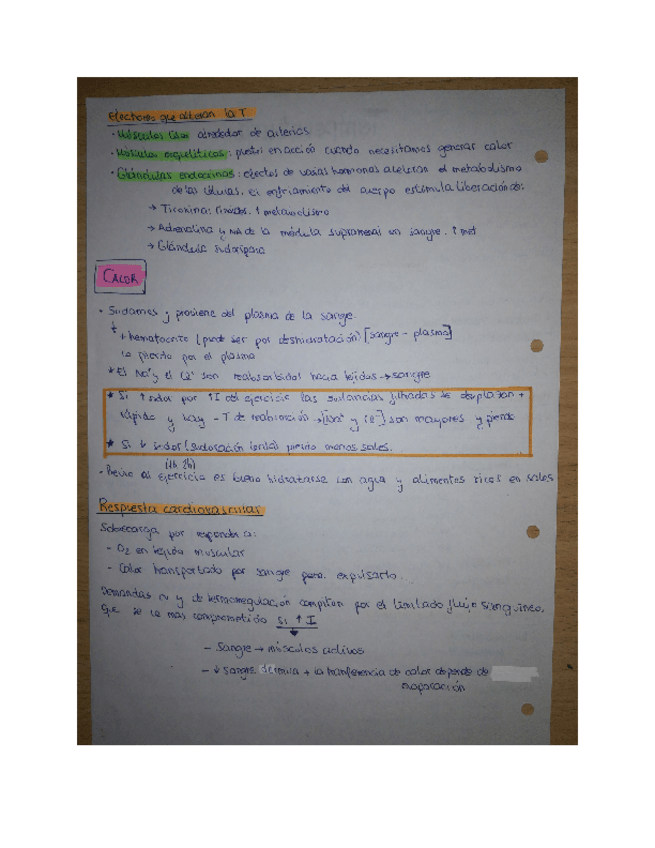 Efectores que alteran la T
· Músculos lisos alrededor de arterias
· Músculos esqueléticos: puestos en acción cuando necesitamos generar calor
· Glándulas endocrinas: efectos de varias hormonas aceleran el metabolismo
de las células. El enfriamiento del cuerpo estimula liberación de:
→ Tiroxina: tiroides. ↑ metabolismo
→ Adrenalina y NA de la médula suprarrenal en sangre. ↑ met
→ Glándula sudorípara
CALOR
· Sudamos y proviene del plasma de la sangre.
+ hematocrito (puede ser por deshidratación) [sangre - plasma]
lo pierdo por el plasma
* El Na⁺ y el Cl⁻ son reabsorbidos hacia tejidos → sangre
* Si ↑ sudor por ↑I del ejercicio las sustancias filtradas se desplazan +
rápido y hay - T de reabsorción → [Na⁺ y Cl⁻] son mayores y pierdo
* Si ↓ sudor (sudoración lenta) pierdo menos sales.
(1h, 2h)
· Previo al ejercicio es bueno hidratarse con agua y alimentos ricos en sales
Respuesta cardiovascular
Sobrecarga por responder a:
- O₂ en tejido muscular
- Calor transportado por sangre para expulsarlo.
Demandas y de termorregulación compiten por el limitado flujo sanguíneo,
que se ve más comprometido si ↑ I
- Sangre → músculos activos
- ↓ sangre dérmica + la transferencia de calor depende de
evaporación